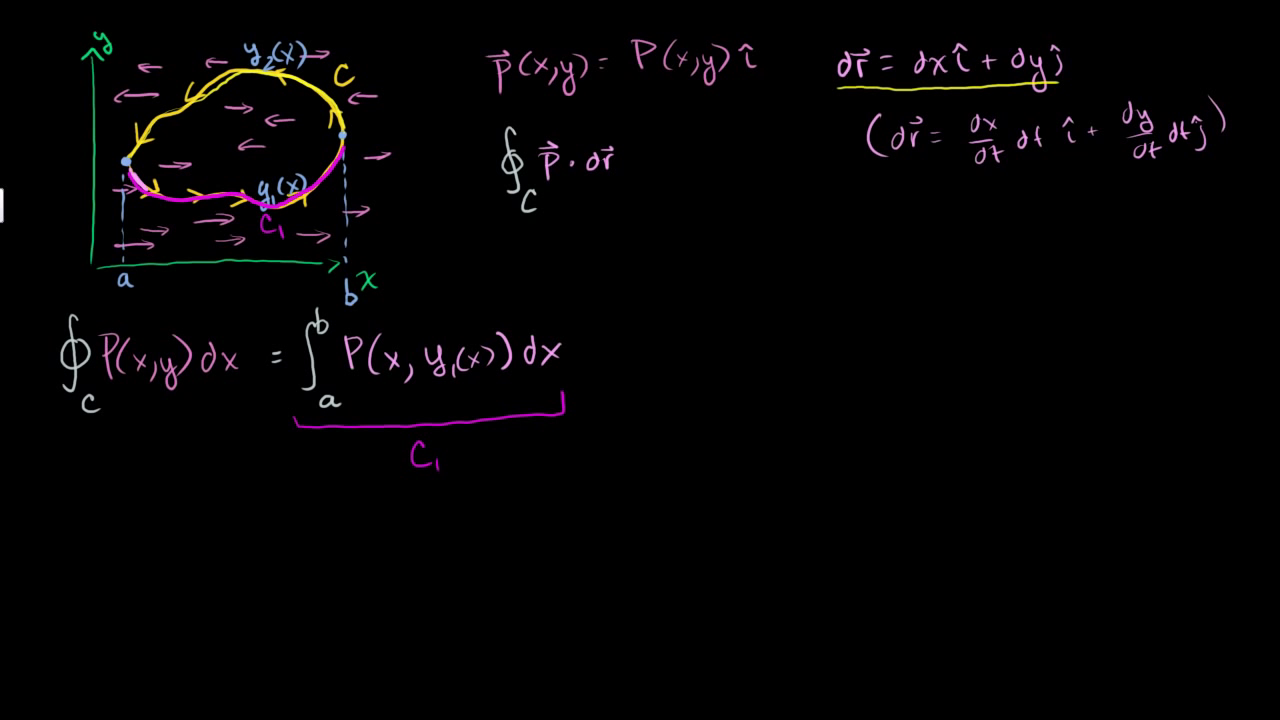 y
y₂(x)
C
y₁(x)
C₁
a
b
x
p⃗(x,y) = P(x,y) î
∮_C p⃗ · dr⃗
dr⃗ = dx î + dy ĵ
(dr⃗ = dx/dt dt î + dy/dt dt ĵ)
∮_C P(x,y) dx = ∫_a^b P(x, y₁(x)) dx
C₁